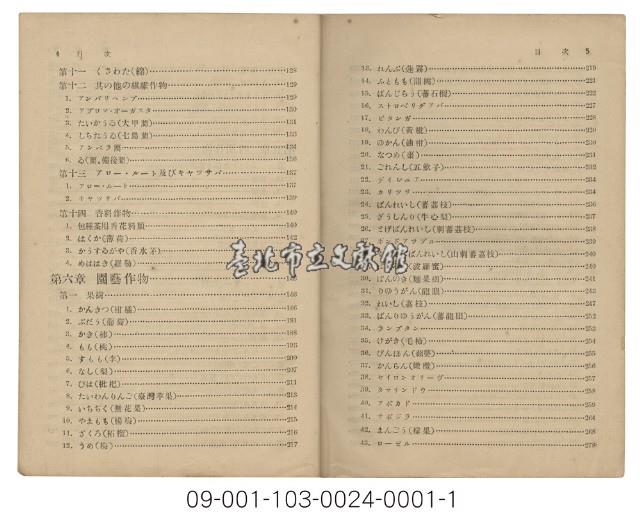 4 目次
第十一 くさわた(綿) 128
第十二 其の他の繊維作物 129
1. アンバリヘンプ 129
2. アブロマ・オーガスタ 130
3. たいかうゐ(大甲藺) 131
4. しちたうゐ(七島藺) 133
5. アンペラ藺 135
6. ゐ(藺,備後藺)
第十三 アロー・ルート及びキャツサバ 137
1. アロー・ルート 137
2. キャツサバ 139
第十四 香料作物 140
1. 包種茶用香花料類 140
2. はくか(薄荷) 142
3. かうすゐがや(香水茅)
4. めはほき(羅勒)
第六章 園藝作物
第一 果樹 146
1. かんきつ(柑橘)
2. ぶだう(葡萄)
3. かき(柿)
4. もも(桃)
5. すもも(李) 209
6. なし(梨) 207
7. びは(枇杷) 211
8. たいわんりんご(臺灣苹果) 213
9. いちぢく(無花果) 214
10. やまもも(楊梅) 215
11. ざくろ(柘榴) 216
12. うめ(梅) 217
目次 5
13. れんぶ(蓮霧) 219
14. ふともも(蒲桃) 221
15. ばんじろう(蕃石榴) 222
16. ストロベリグアバ 227
17. ピタンガ
18. わんぴ(黄枇)
19. ゆかん(油柑) 229
20. なつめ(棗)
21. ごれんし(五斂子)
22. デイレニア
23. カリツサ 234
24. ばんれいし(蕃荔枝) 236
25. ぎうしんり(牛心梨)
26. とげばんれいし(刺蕃荔枝)
ばんれいし(山刺蕃荔枝)
(波羅蜜)
30. ぱんのき(麺果樹)
31. りゆうがん(龍眼)
32. れいし(荔枝) 247
33. ばんりゆうがん(蕃龍眼)
34. ランブタン 252
35. けがき(毛柿)
36. びんぽん(蘋婆)
37. かんらん(橄欖)
38. セイロンオリーヴ
39. タマリンドウ
40. アボカド
41. サポジラ 264
42. まんごう(檬果) 268
43. ローゼル
臺北市立文獻館
09-001-103-0024-0001-1